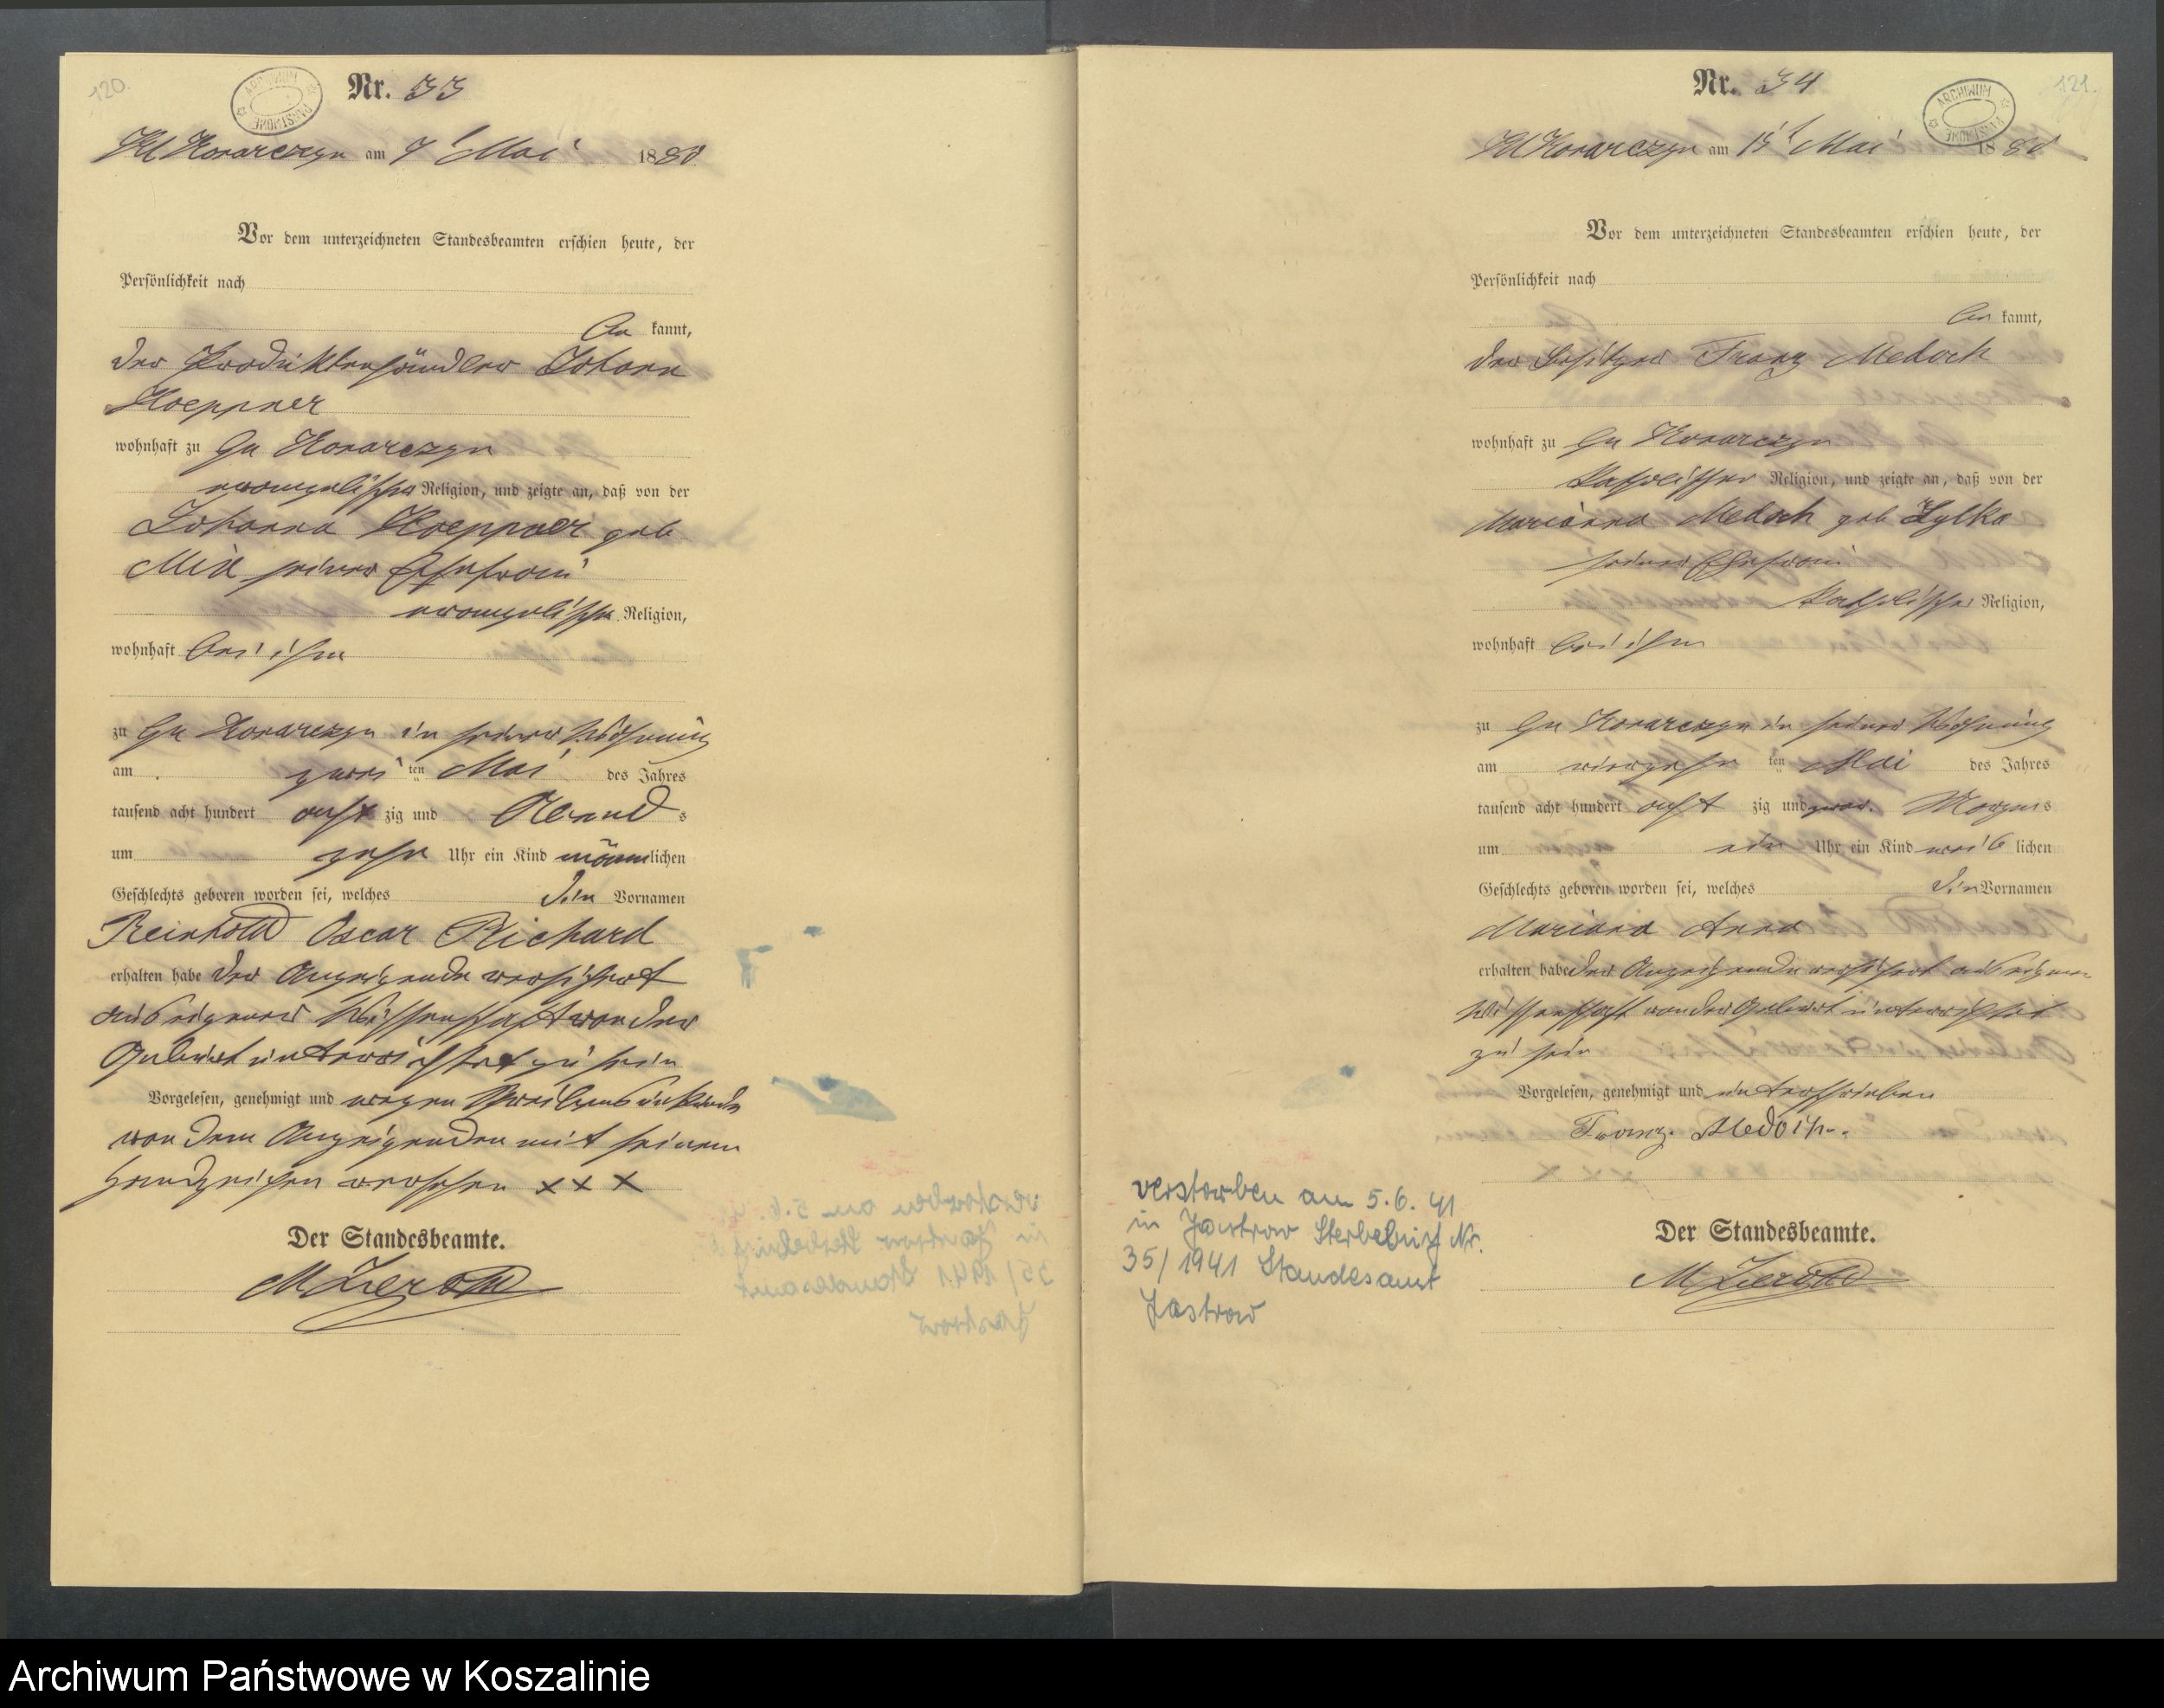 120.
ARCHIWUM PAŃSTWOWE
Nr. 33
Kl Konarczyn am 7t Mai 1880
Vor dem unterzeichneten Standesbeamten erschien heute, der
Persönlichkeit nach
be kannt,
der Produktenhändler Johann
Koeppner
wohnhaft zu Gr Konarczyn
evangelischer Religion, und zeigte an, daß von der
Johanna Koeppner geb
seiner Ehefrau
evangelischer Religion,
wohnhaft bei ihm
zu Gr Konarczyn in seiner Wohnung
am zwei ten Mai des Jahres
tausend acht hundert acht zig und Abend s
um zehn Uhr ein Kind männlichen
Geschlechts geboren worden sei, welches die Vornamen
Reinhold Oscar Richard
erhalten habe der Anzeigende versichert
aus eigener Wissenschaft von der
Geburt unterrichtet zu sein
Vorgelesen, genehmigt und wegen Schreibensunkunde
von dem Anzeigenden mit seinem
Handzeichen versehen x x x
Der Standesbeamte.
121.
ARCHIWUM PAŃSTWOWE
Nr. 34
Kl Konarczyn am 15t Mai 1880
Vor dem unterzeichneten Standesbeamten erschien heute, der
Persönlichkeit nach
be kannt,
der Besitzer Franz Medoch
wohnhaft zu Gr Konarczyn
katholischer Religion, und zeigte an, daß von der
Marianna Medoch geb Zylka
seiner Ehefrau
katholischer Religion,
wohnhaft bei ihm
zu Gr Konarczyn in seiner Wohnung
am vierzehn ten Mai des Jahres
tausend acht hundert acht zig und zwar Morgens
um ein Uhr ein Kind weib lichen
Geschlechts geboren worden sei, welches die Vornamen
Mariana Anna
erhalten habe der Anzeigende versichert aus eigener
Wissenschaft von der Geburt unterrichtet
zu sein
Vorgelesen, genehmigt und unterschrieben
Franz
verstorben am 5.6.41
in Jastrow Sterbebuch Nr.
35/1941 Standesamt
Jastrow
Der Standesbeamte.
Archiwum Państwowe w Koszalinie